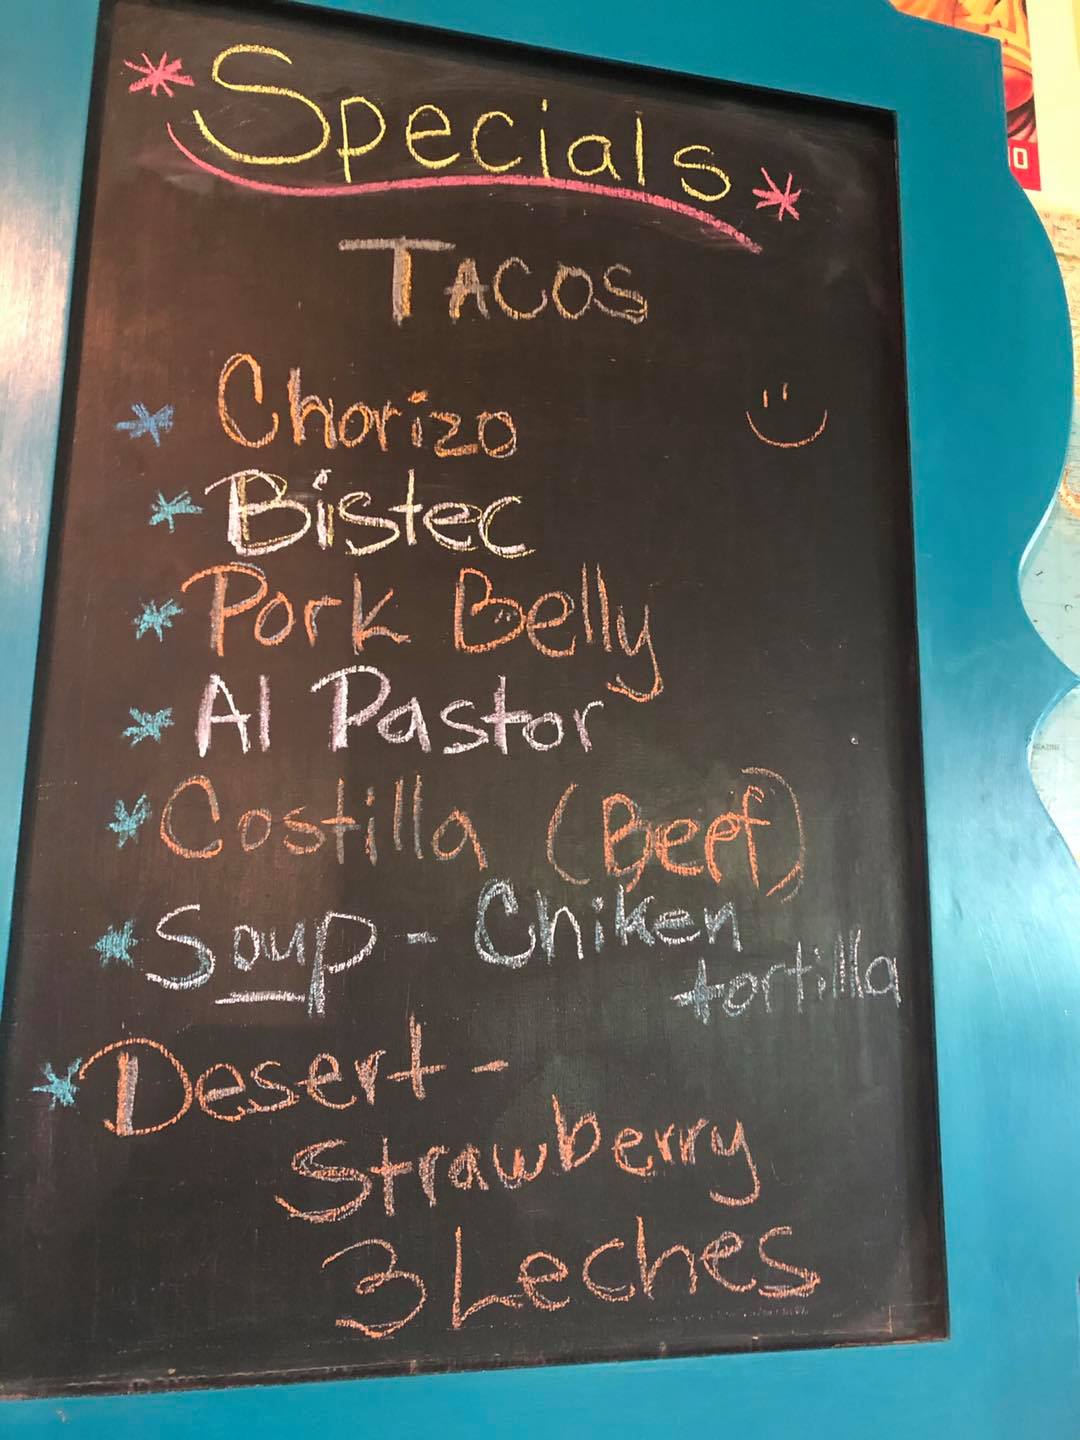 * Specials *
TACOS
* Chorizo
* Bistec
* Pork Belly
* Al Pastor
* Costilla (Beef)
* Soup - Chiken
tortilla
* Desert -
Strawberry
3 Leches